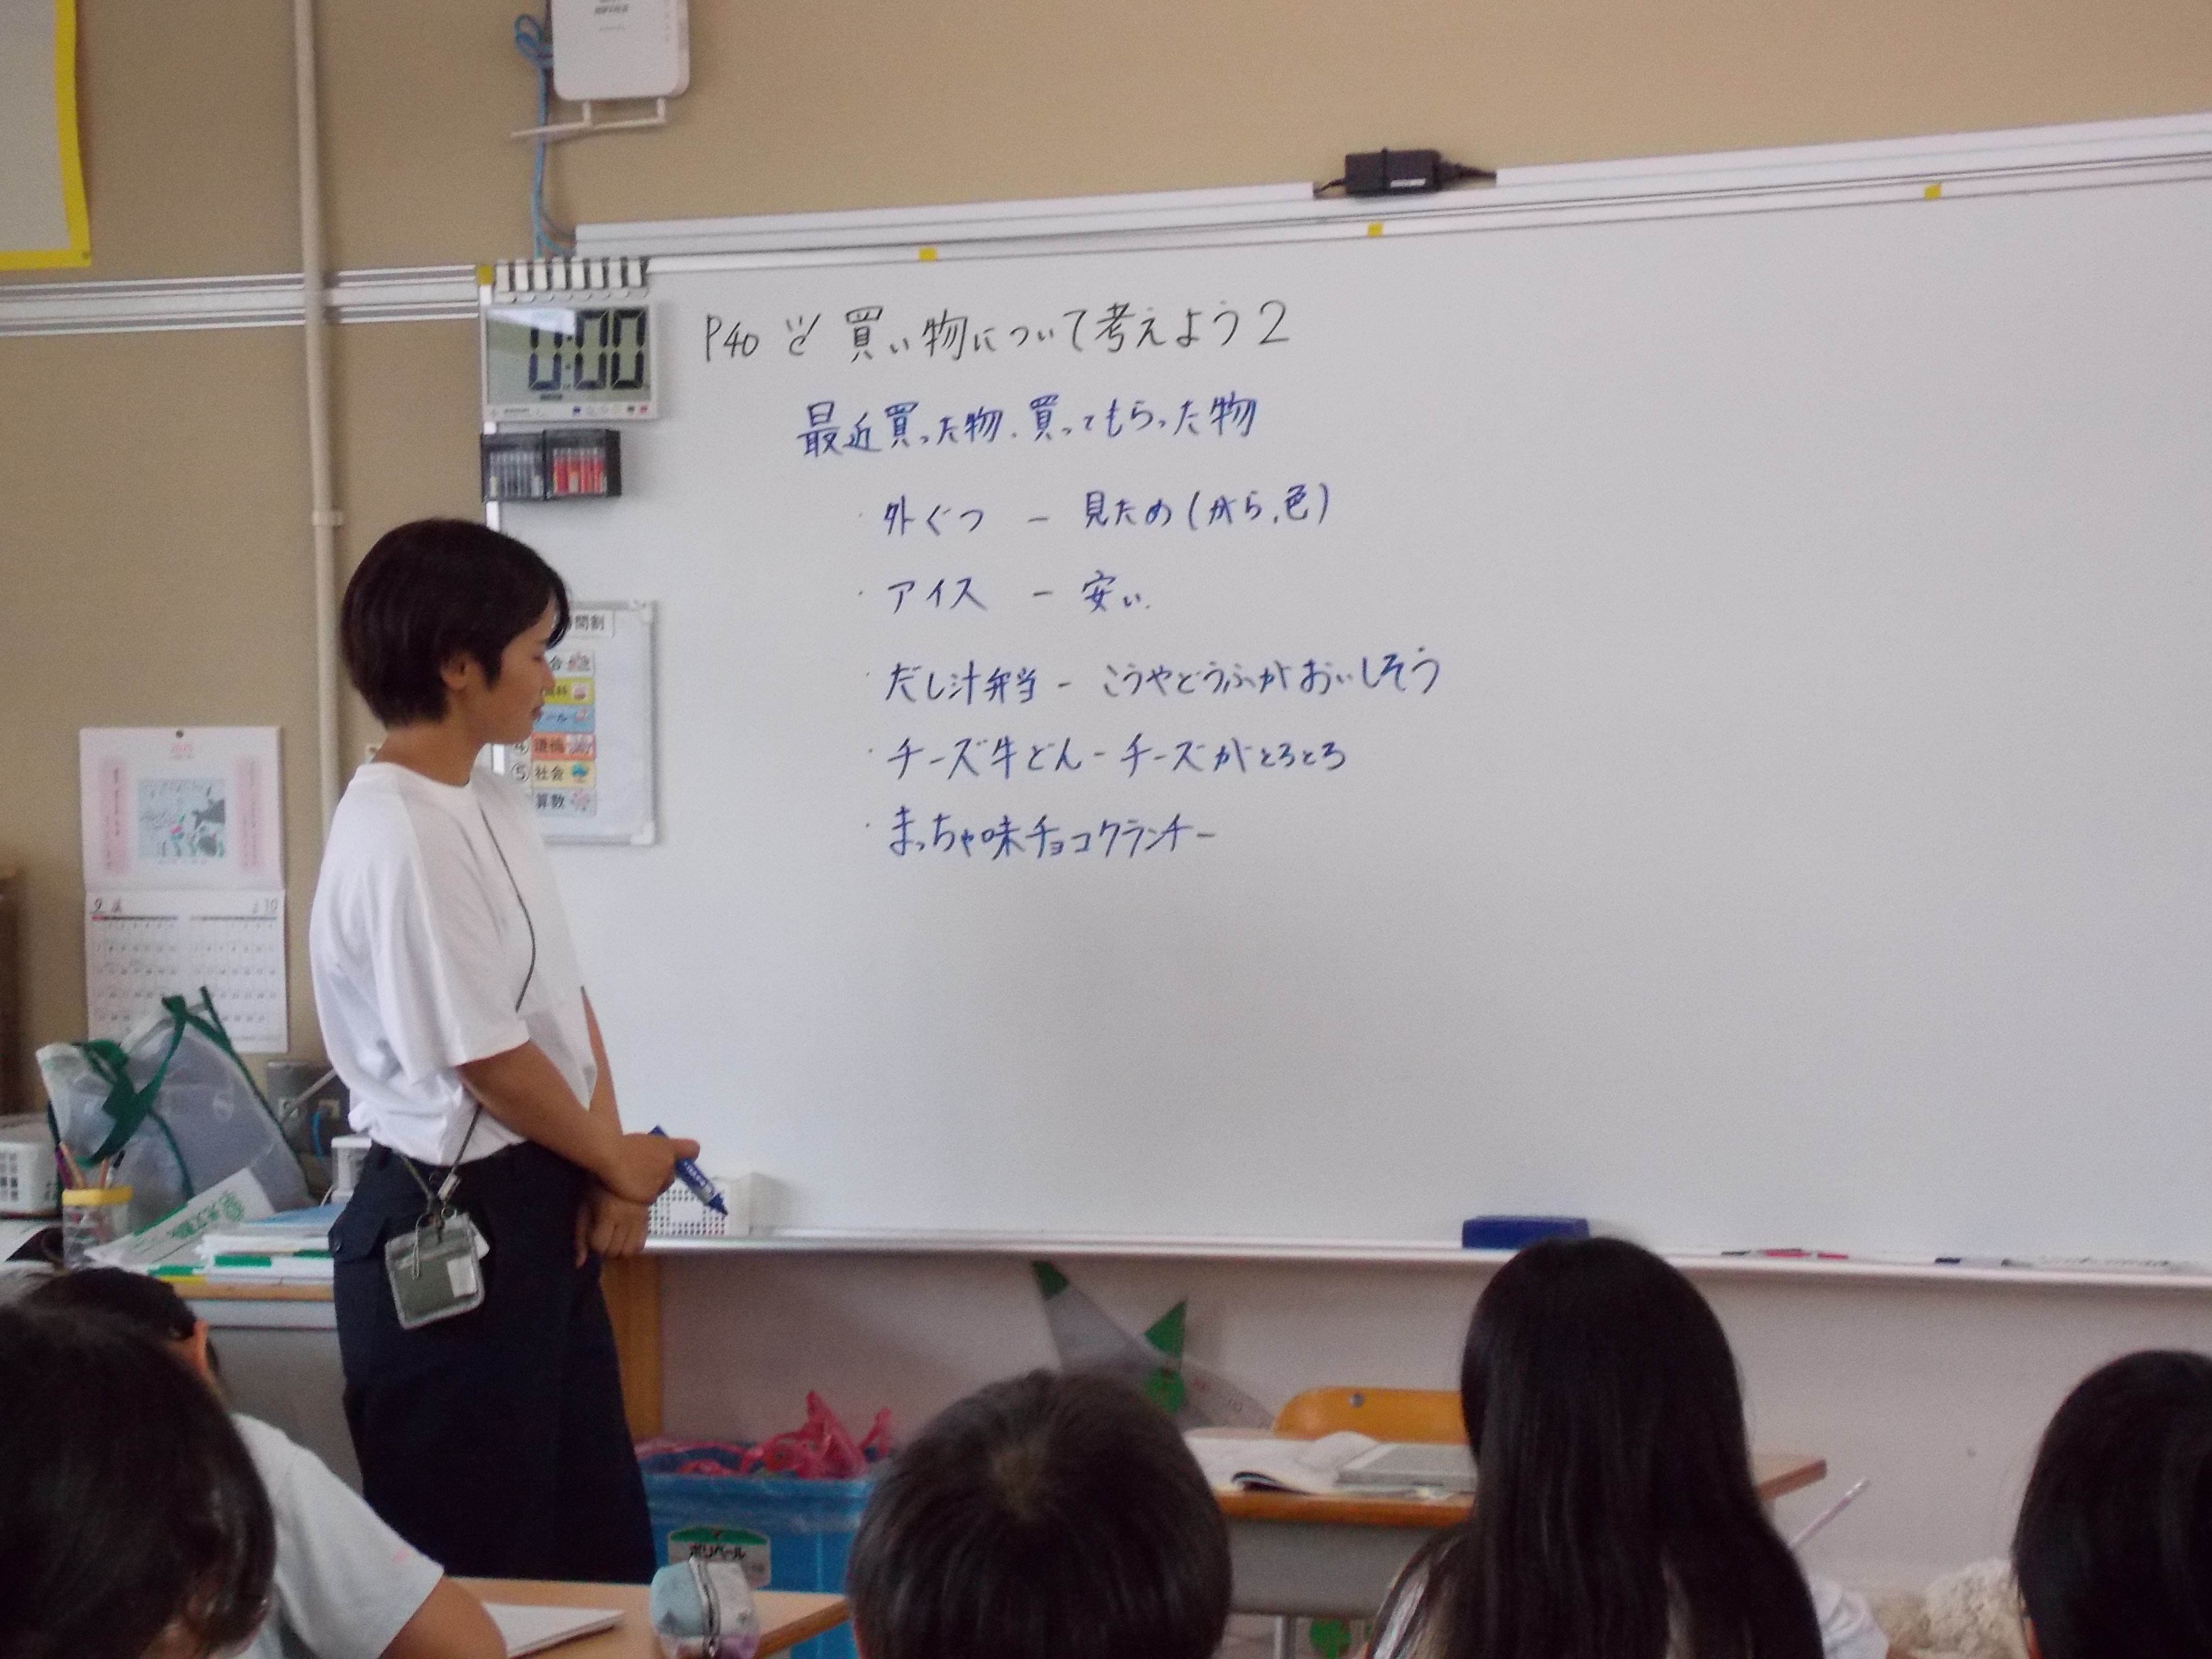 0:00
P40 買い物について考えよう2
最近買った物、買ってもらった物
・外ぐつ － 見ため(がら、色)
・アイス － 安い
・だし汁弁当 － こうやどうふがおいしそう
・チーズ牛どん－チーズがとろとろ
・まっちゃ味チョコクランチー
間割
会
ール
④道徳
⑤社会
算数
9
10
ポリペール